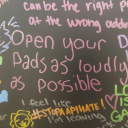 can be the right p
at the wrong addr
Open your
Pads as loudly
as possible
I feel like
#STOPAAPIHATE!
I'm leaving